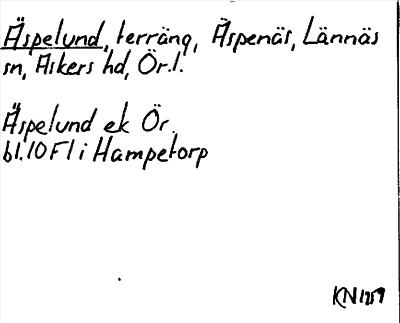 Äspelund, terräng, Äspenäs, Lännäs
sn, Askers hd, Ör.l.
Äspelund ek Ör.
bl.10 Fl i Hampetorp